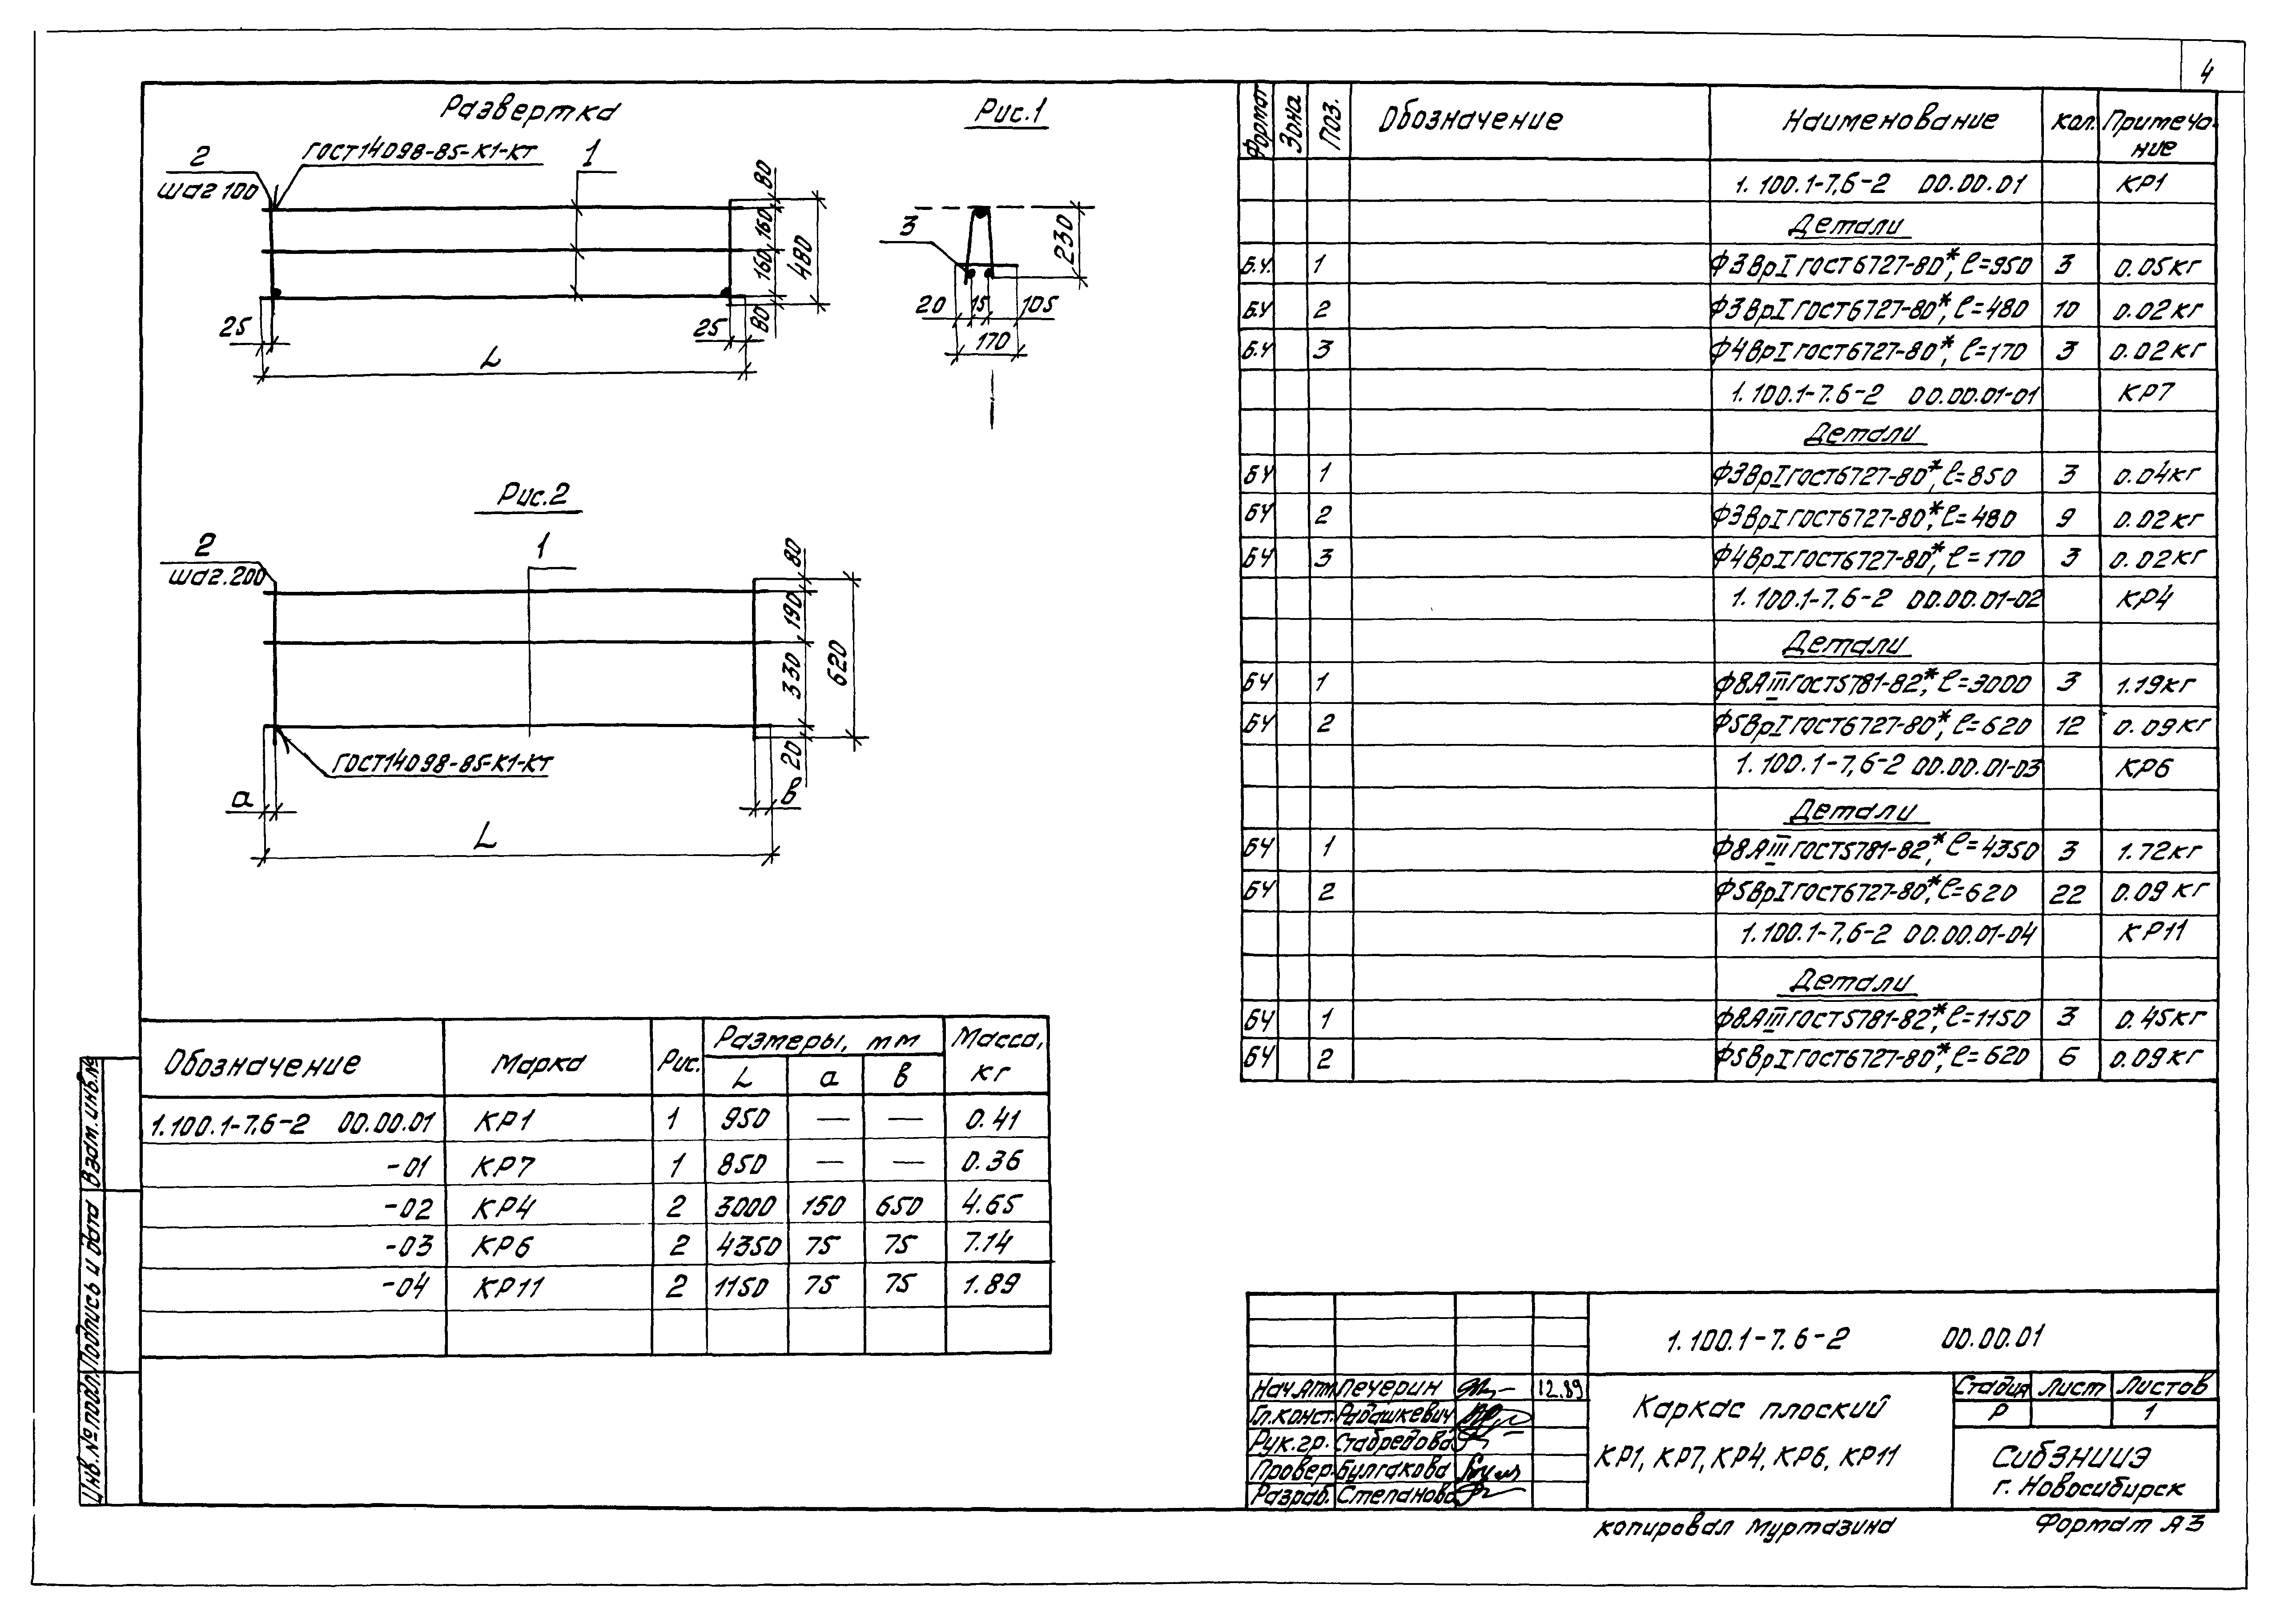 4
Развертка
2
шаг 100
ГОСТ14098-85-К1-КТ
1
80
160
160
480
80
25
25
L
Рис.1
3
230
20
15
105
170
Рис.2
2
шаг.200
1
80
190
330
620
20
ГОСТ14098-85-К1-КТ
а
в
L
Обозначение Марка Рис. Размеры, мм Масса, кг
L а в
1.100.1-7.6-2 00.00.01 КР1 1 950 — — 0.41
-01 КР7 1 850 — — 0.36
-02 КР4 2 3000 150 650 4.65
-03 КР6 2 4350 75 75 7.14
-04 КР11 2 1150 75 75 1.89
Формат Зона Поз. Обозначение Наименование Кол. Примеча-
ние
1.100.1-7.6-2 00.00.01 КР1
Детали
Б.Ч. 1 Ф3ВрI ГОСТ6727-80*, ℓ=950 3 0.05кг
БЧ 2 Ф3ВрI ГОСТ6727-80*, ℓ=480 10 0.02кг
Б.Ч 3 Ф4ВрI ГОСТ6727-80*, ℓ=170 3 0.02кг
1.100.1-7.6-2 00.00.01-01 КР7
Детали
БЧ 1 Ф3ВрI ГОСТ6727-80*, ℓ=850 3 0.04кг
БЧ 2 Ф3ВрI ГОСТ6727-80*, ℓ=480 9 0.02кг
БЧ 3 Ф4ВрI ГОСТ6727-80*, ℓ=170 3 0.02кг
1.100.1-7.6-2 00.00.01-02 КР4
Детали
БЧ 1 Ф8АIII ГОСТ5781-82*, ℓ=3000 3 1.19кг
БЧ 2 Ф5ВрI ГОСТ6727-80*, ℓ=620 12 0.09кг
1.100.1-7.6-2 00.00.01-03 КР6
Детали
БЧ 1 Ф8АIII ГОСТ5781-82*, ℓ=4350 3 1.72кг
БЧ 2 Ф5ВрI ГОСТ6727-80*, ℓ=620 22 0.09 кг
1.100.1-7.6-2 00.00.01-04 КР11
Детали
БЧ 1 Ф8АIII ГОСТ5781-82*, ℓ=1150 3 0.45кг
БЧ 2 Ф5ВрI ГОСТ6727-80*, ℓ=620 6 0.09кг
Взам.инв.№
Подпись и дата
Инв.№подл.
1.100.1-7.6-2 00.00.01
Нач.АПМ Печерин 12.89
Гл.конст. Рабашкевич
Рук.гр. Стабредова
Провер. Булгакова
Разраб. Степанова
Каркас плоский
КР1, КР7, КР4, КР6, КР11
Стадия Лист Листов
Р 1
СибЗНИИЭ
г. Новосибирск
копировал Муртазина
Формат А3